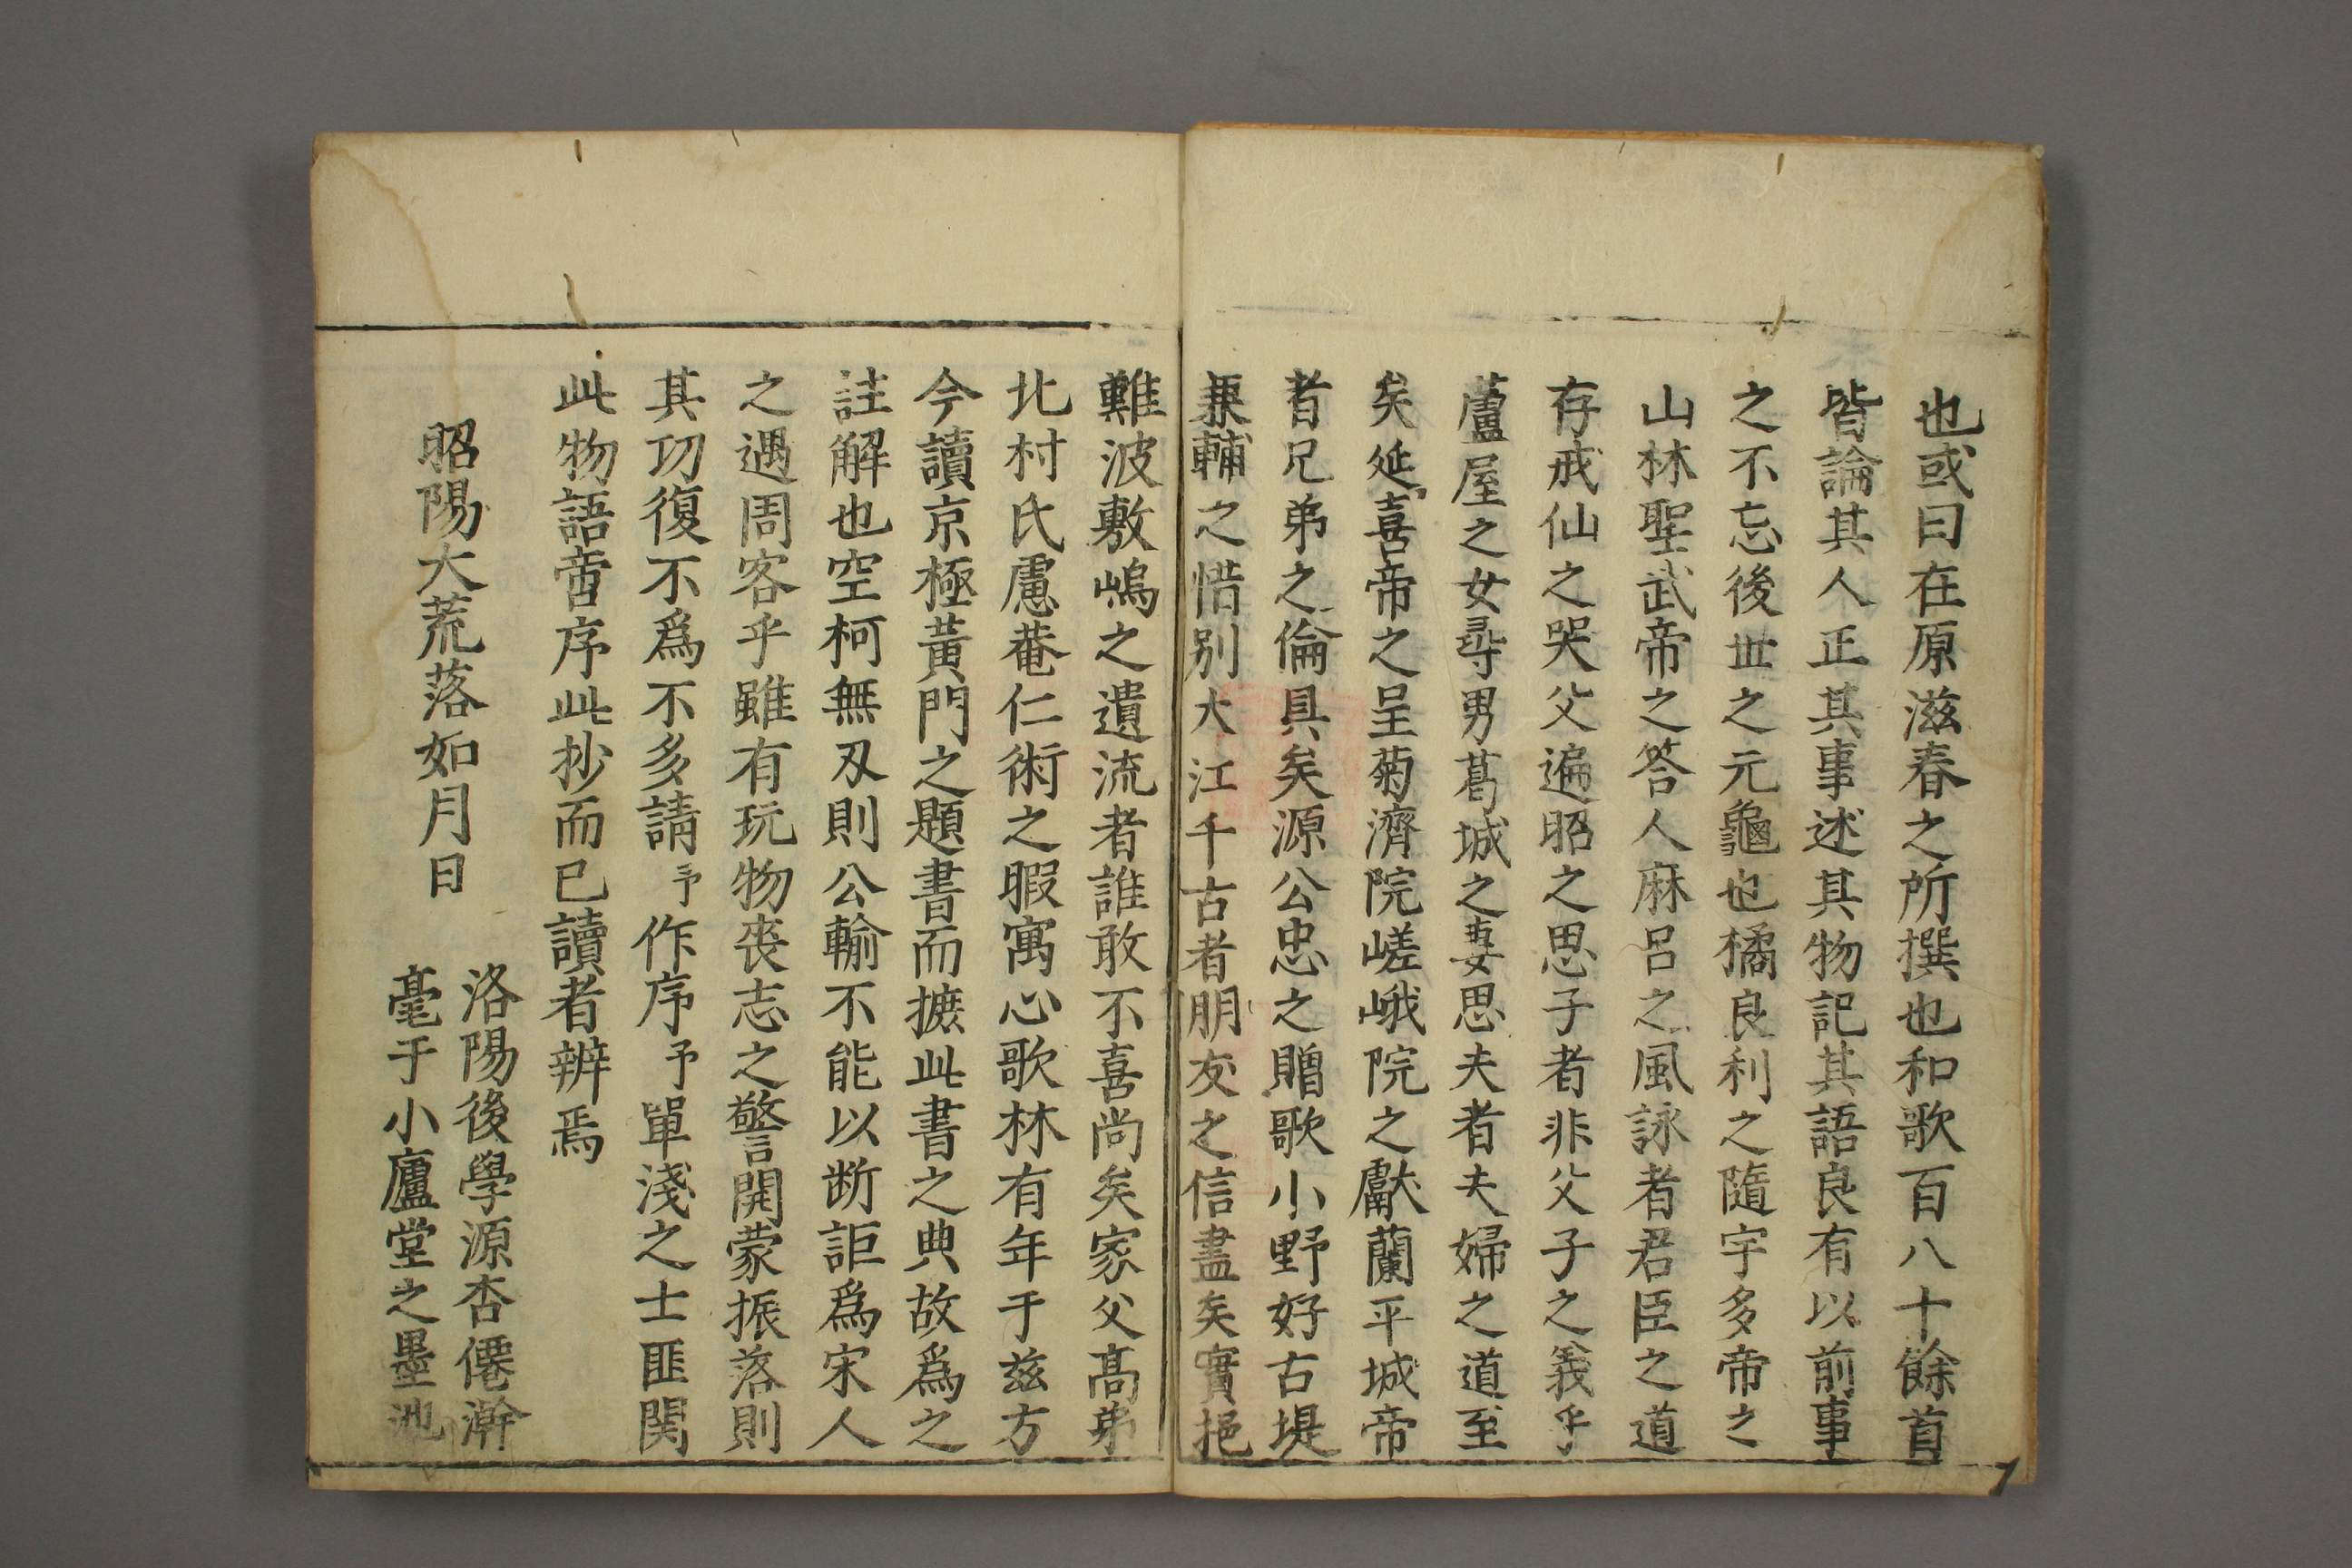 也或曰在原滋春之所撰也和歌百八十餘首
皆論其人正其事述其物記其語良有以前事
之不忘後世之元龜也橘良利之隨宇多帝之
山林聖武帝之答人麻呂之風詠者君臣之道
存戒仙之哭父遍昭之思子者非父子之義乎
蘆屋之女尋男葛城之妻思夫者夫婦之道至
矣延喜帝之呈菊濟院嵯峨院之獻蘭平城帝
者兄弟之倫具矣源公忠之贈歌小野好古堤
兼輔之惜別大江千古者朋友之信盡矣實挹
難波敷嶋之遺流者誰敢不喜尚矣家父高弟
北村氏慮菴仁術之暇寓心歌林有年于茲方
今讀京極黃門之題書而摭此書之典故爲之
註解也空柯無刄則公輸不能以断詎爲宋人
之遇周客乎雖有玩物喪志之警開蒙振落則
其功復不爲不多請予作序予單淺之士匪関
此物語啻序此抄而已讀者辨焉
昭陽大荒落如月日
洛陽後學源杏僊澣
毫于小廬堂之墨池